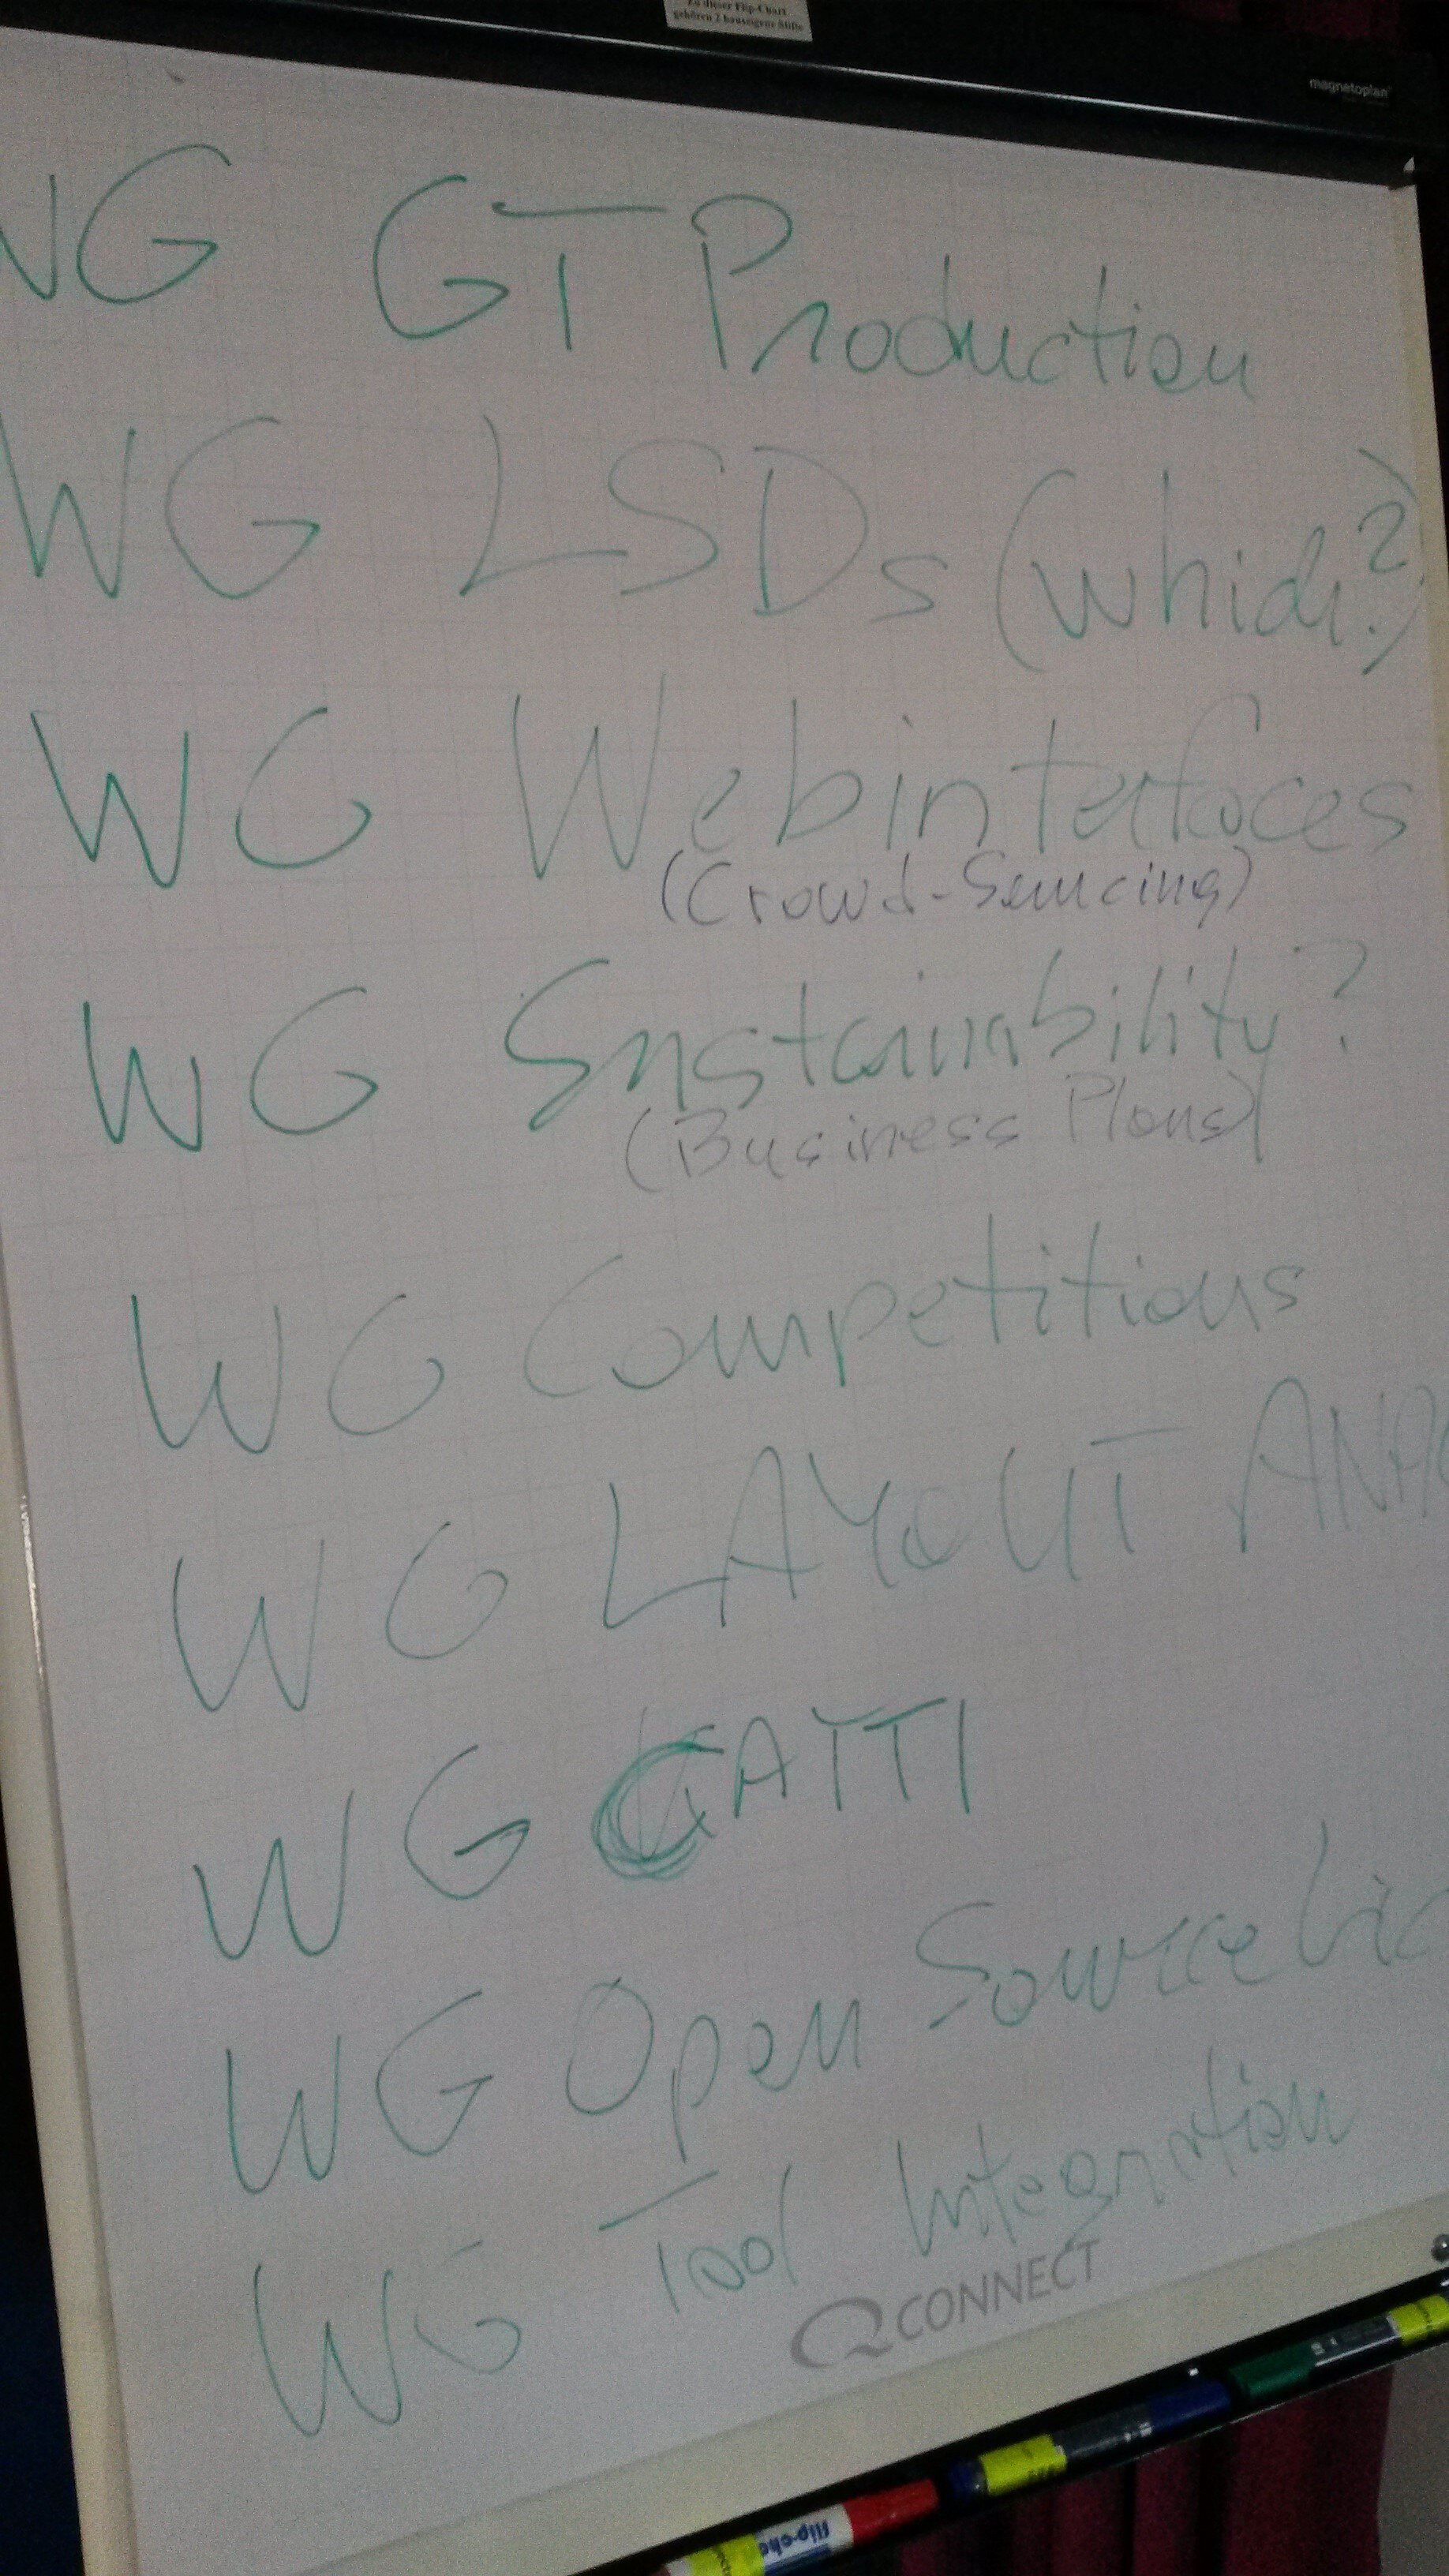 Zu dieser Flip-Chart
gehören 2 hauseigene Stifte
magnetoplan
WG GT Production
WG LSDs (which?)
WG Webinterfaces
(Crowd-Sourcing)
WG Sustainability?
(Business Plans)
WG Competitions
WG LAYOUT ANA
WG CATTI
WG Open Source Lic
WG Tool Integration
Q CONNECT
flip-cha